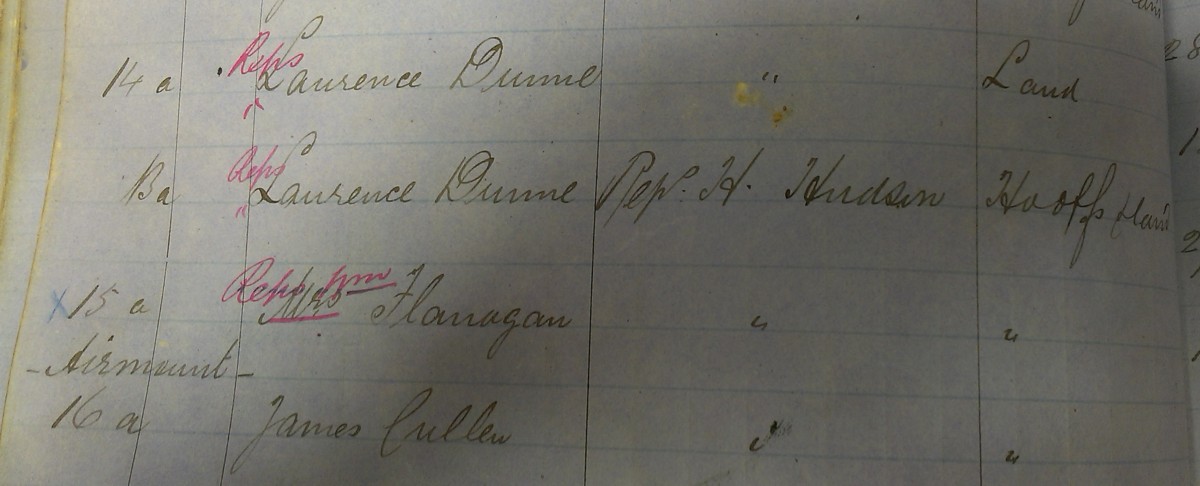 Reps
14 a Laurence Dunne " Land 28
"
Reps
Ba Laurence Dunne Rep. H. Hudson Ho offs & land
"
Reps Wm
X 15 a Mrs Flanagan " "
- Airmount -
16 a James Cullen " "